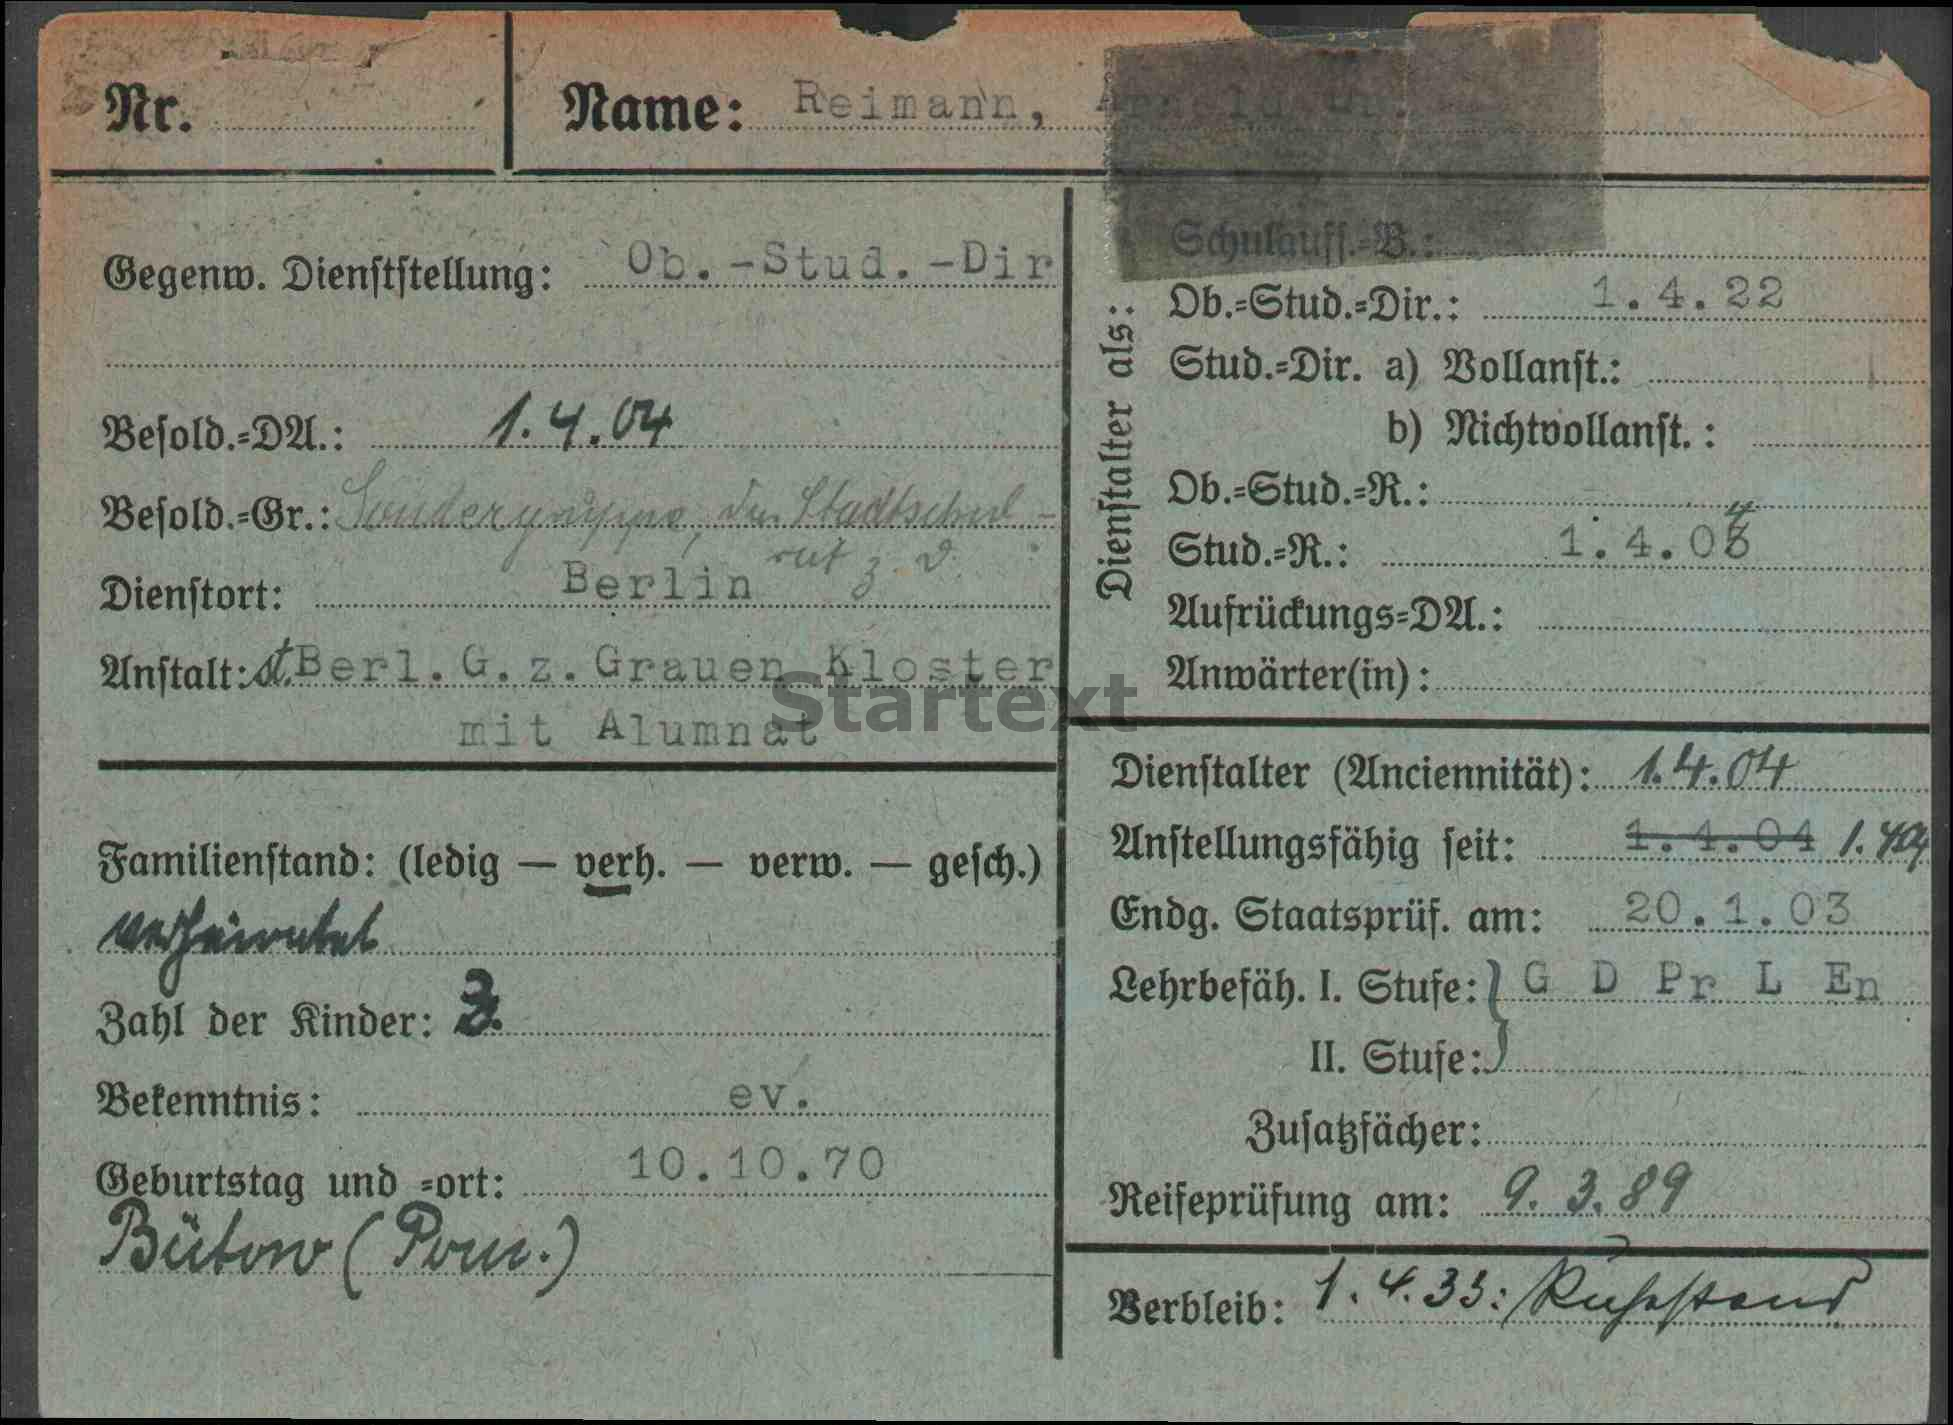 Nr.
Name: Reimann, Arnold Dr.
Gegenw. Dienststellung: Ob.-Stud.-Dir
Besold.-DA.: 1.4.04
Besold.-Gr.: Sondergruppe, der Stadtschul-
rat z. D.
Dienstort: Berlin
Anstalt: st. Berl. G. z. Grauen Kloster
mit Alumnat
Familienstand: (ledig — verh. — verw. — gesch.)
verheiratet
Zahl der Kinder: 3.
Bekenntnis: ev.
Geburtstag und -ort: 10.10.70
Bütow (Pom.)
Dienstalter als:
Schulauff.-B.:
Ob.-Stud.-Dir.: 1.4.22
Stud.-Dir. a) Vollanst.:
b) Nichtvollanst.:
Ob.-Stud.-R.:
Stud.-R.: 1.4.04
Aufrückungs-DA.:
Anwärter(in):
Dienstalter (Anciennität): 1.4.04
Anstellungsfähig seit: 1.4.04 1.4.04
Endg. Staatsprüf. am: 20.1.03
Lehrbefäh. I. Stufe: G D Pr L En
II. Stufe:
Zusatzfächer:
Reifeprüfung am: 9.3.89
Verbleib: 1.4.33: Ruhestand
Startext